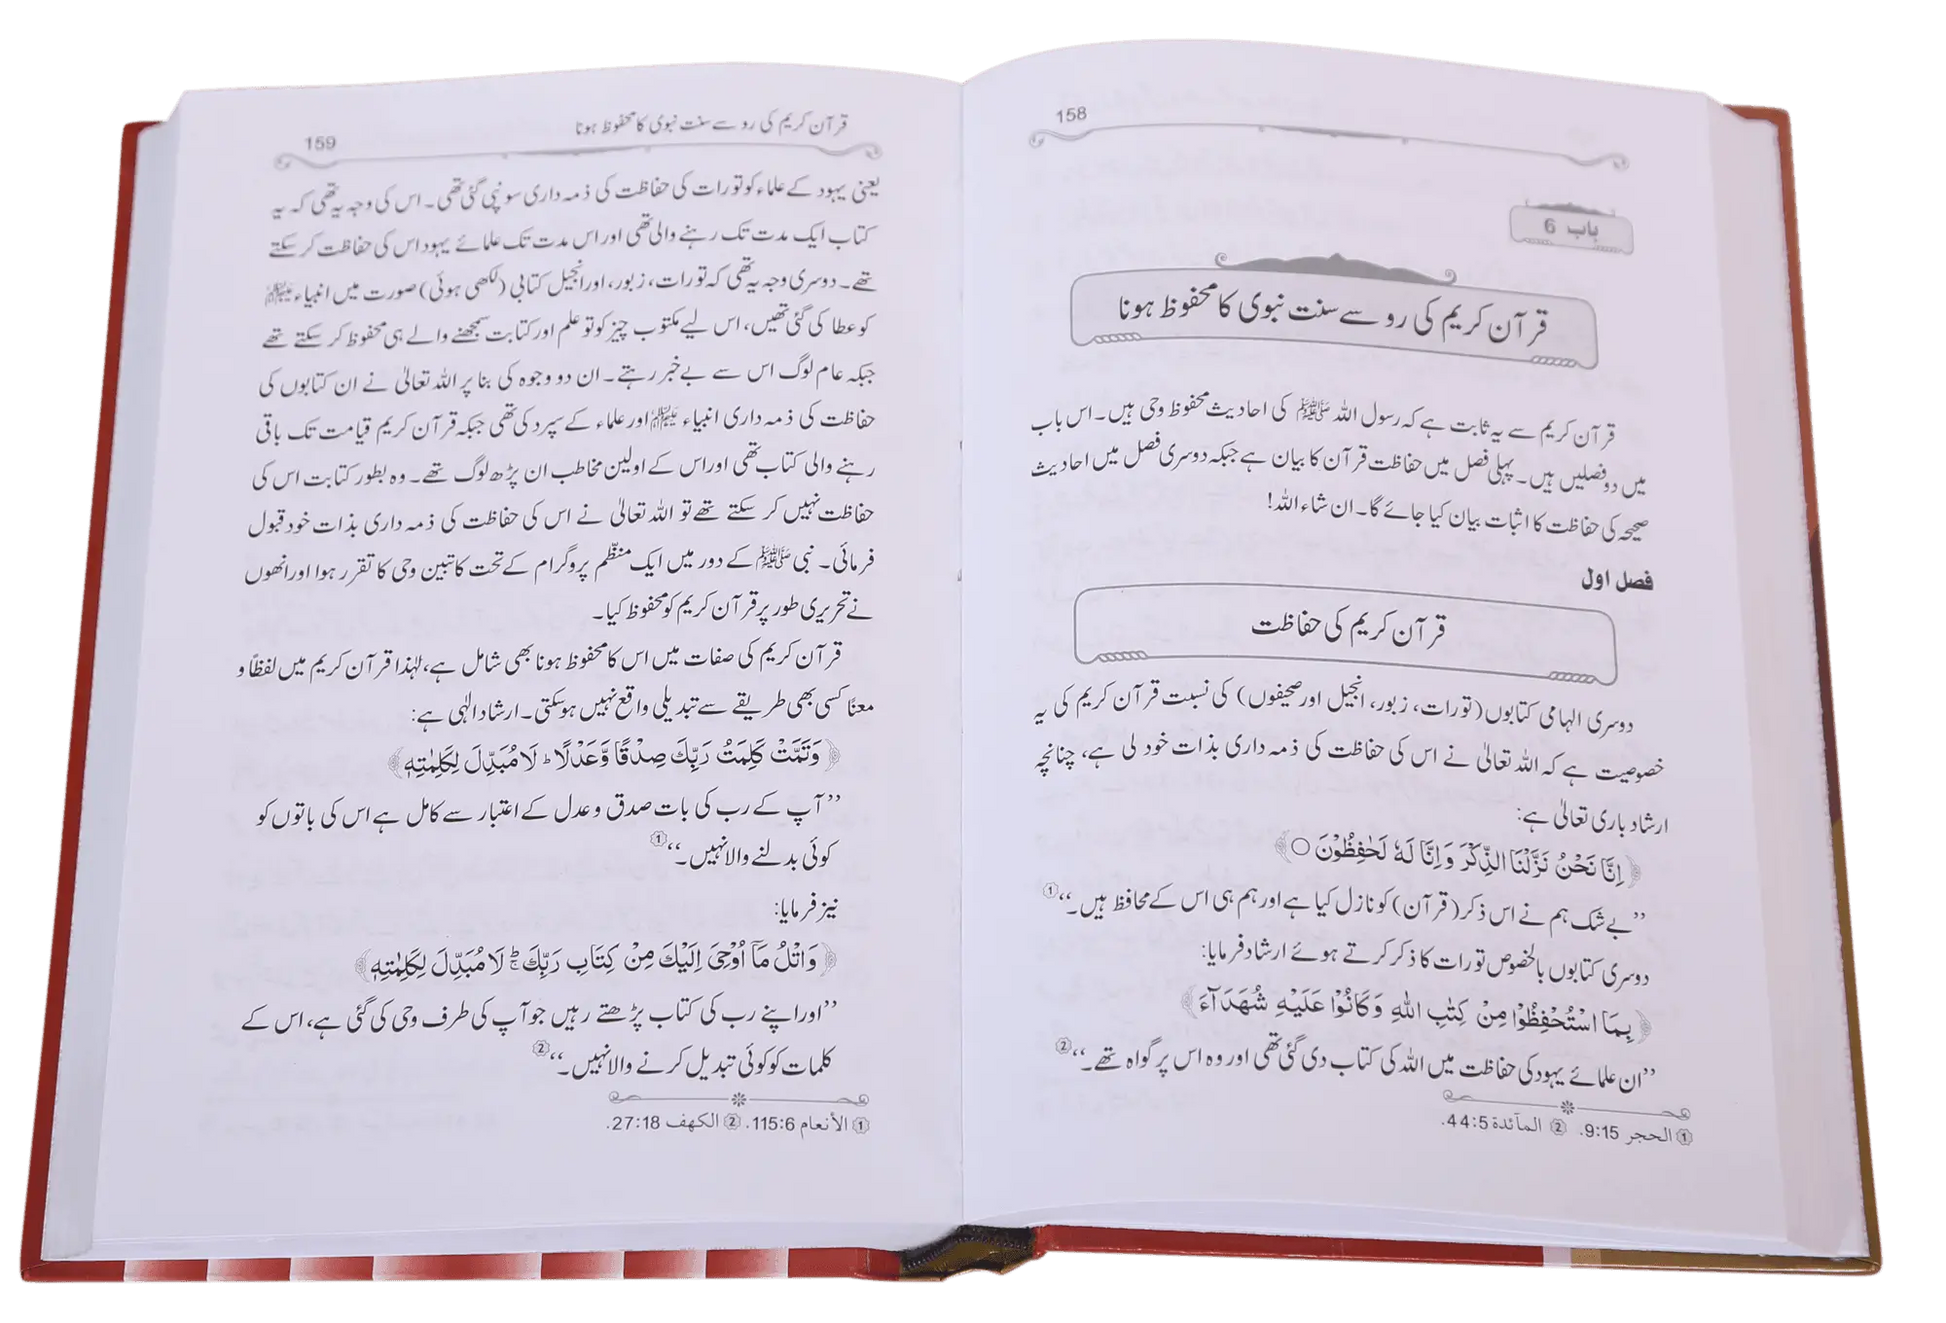 158
باب 6
قرآن کریم کی رو سے سنت نبوی کا محفوظ ہونا
قرآن کریم سے یہ ثابت ہے کہ رسول اللہ ﷺ کی احادیث محفوظ وحی ہیں۔ اس باب
میں دو فصلیں ہیں۔ پہلی فصل میں حفاظت قرآن کا بیان ہے جبکہ دوسری فصل میں احادیث
صحیحہ کی حفاظت کا اثبات بیان کیا جائے گا۔ ان شاء اللہ!
فصل اول
قرآن کریم کی حفاظت
دوسری الہامی کتابوں (تورات، زبور، انجیل اور صحیفوں) کی نسبت قرآن کریم کی یہ
خصوصیت ہے کہ اللہ تعالیٰ نے اس کی حفاظت کی ذمہ داری بذات خود لی ہے، چنانچہ
ارشاد باری تعالیٰ ہے:
﴿اِنَّا نَحْنُ نَزَّلْنَا الذِّكْرَ وَاِنَّا لَهٗ لَحٰفِظُوْنَ ○﴾
’’بے شک ہم نے اس ذکر (قرآن) کو نازل کیا ہے اور ہم ہی اس کے محافظ ہیں۔‘‘①
دوسری کتابوں بالخصوص تورات کا ذکر کرتے ہوئے ارشاد فرمایا:
﴿بِمَا اسْتُحْفِظُوْا مِنْ كِتٰبِ اللّٰهِ وَكَانُوْا عَلَيْهِ شُهَدَآءَ﴾
’’ان علمائے یہود کی حفاظت میں اللہ کی کتاب دی گئی تھی اور وہ اس پر گواہ تھے۔‘‘②
① الحجر 9:15. ② المآئدة 44:5.
قرآن کریم کی رو سے سنت نبوی کا محفوظ ہونا 159
یعنی یہود کے علماء کو تورات کی حفاظت کی ذمہ داری سونپی گئی تھی۔ اس کی وجہ یہ تھی کہ یہ
کتاب ایک مدت تک رہنے والی تھی اور اس مدت تک علمائے یہود اس کی حفاظت کر سکتے
تھے۔ دوسری وجہ یہ تھی کہ تورات، زبور، اور انجیل کتابی (لکھی ہوئی) صورت میں انبیاء
کو عطا کی گئی تھیں، اس لیے مکتوب چیز کو تو علم اور کتابت سمجھنے والے ہی محفوظ کر سکتے تھے
جبکہ عام لوگ اس سے بے خبر رہتے۔ ان دو وجوہ کی بنا پر اللہ تعالیٰ نے ان کتابوں کی
حفاظت کی ذمہ داری انبیاء اور علماء کے سپرد کی تھی جبکہ قرآن کریم قیامت تک باقی
رہنے والی کتاب تھی اور اس کے اولین مخاطب ان پڑھ لوگ تھے۔ وہ بطور کتابت اس کی
حفاظت نہیں کر سکتے تھے تو اللہ تعالیٰ نے اس کی حفاظت کی ذمہ داری بذات خود قبول
فرمائی۔ نبی ﷺ کے دور میں ایک منظّم پروگرام کے تحت کاتبین وحی کا تقرر ہوا اور انھوں
نے تحریری طور پر قرآن کریم کو محفوظ کیا۔
قرآن کریم کی صفات میں اس کا محفوظ ہونا بھی شامل ہے، لہٰذا قرآن کریم میں لفظًا و
معنًا کسی بھی طریقے سے تبدیلی واقع نہیں ہو سکتی۔ ارشاد الٰہی ہے:
﴿وَتَمَّتْ كَلِمَتُ رَبِّكَ صِدْقًا وَّعَدْلًا ؕ لَا مُبَدِّلَ لِكَلِمٰتِهٖ﴾
’’آپ کے رب کی بات صدق و عدل کے اعتبار سے کامل ہے اس کی باتوں کو
کوئی بدلنے والا نہیں۔‘‘①
نیز فرمایا:
﴿وَاتْلُ مَآ اُوْحِیَ اِلَيْكَ مِنْ كِتَابِ رَبِّكَ ۚ لَا مُبَدِّلَ لِكَلِمٰتِهٖ﴾
’’اور اپنے رب کی کتاب پڑھتے رہیں جو آپ کی طرف وحی کی گئی ہے، اس کے
کلمات کو کوئی تبدیل کرنے والا نہیں۔‘‘②
① الأنعام 115:6. ② الكهف 27:18.